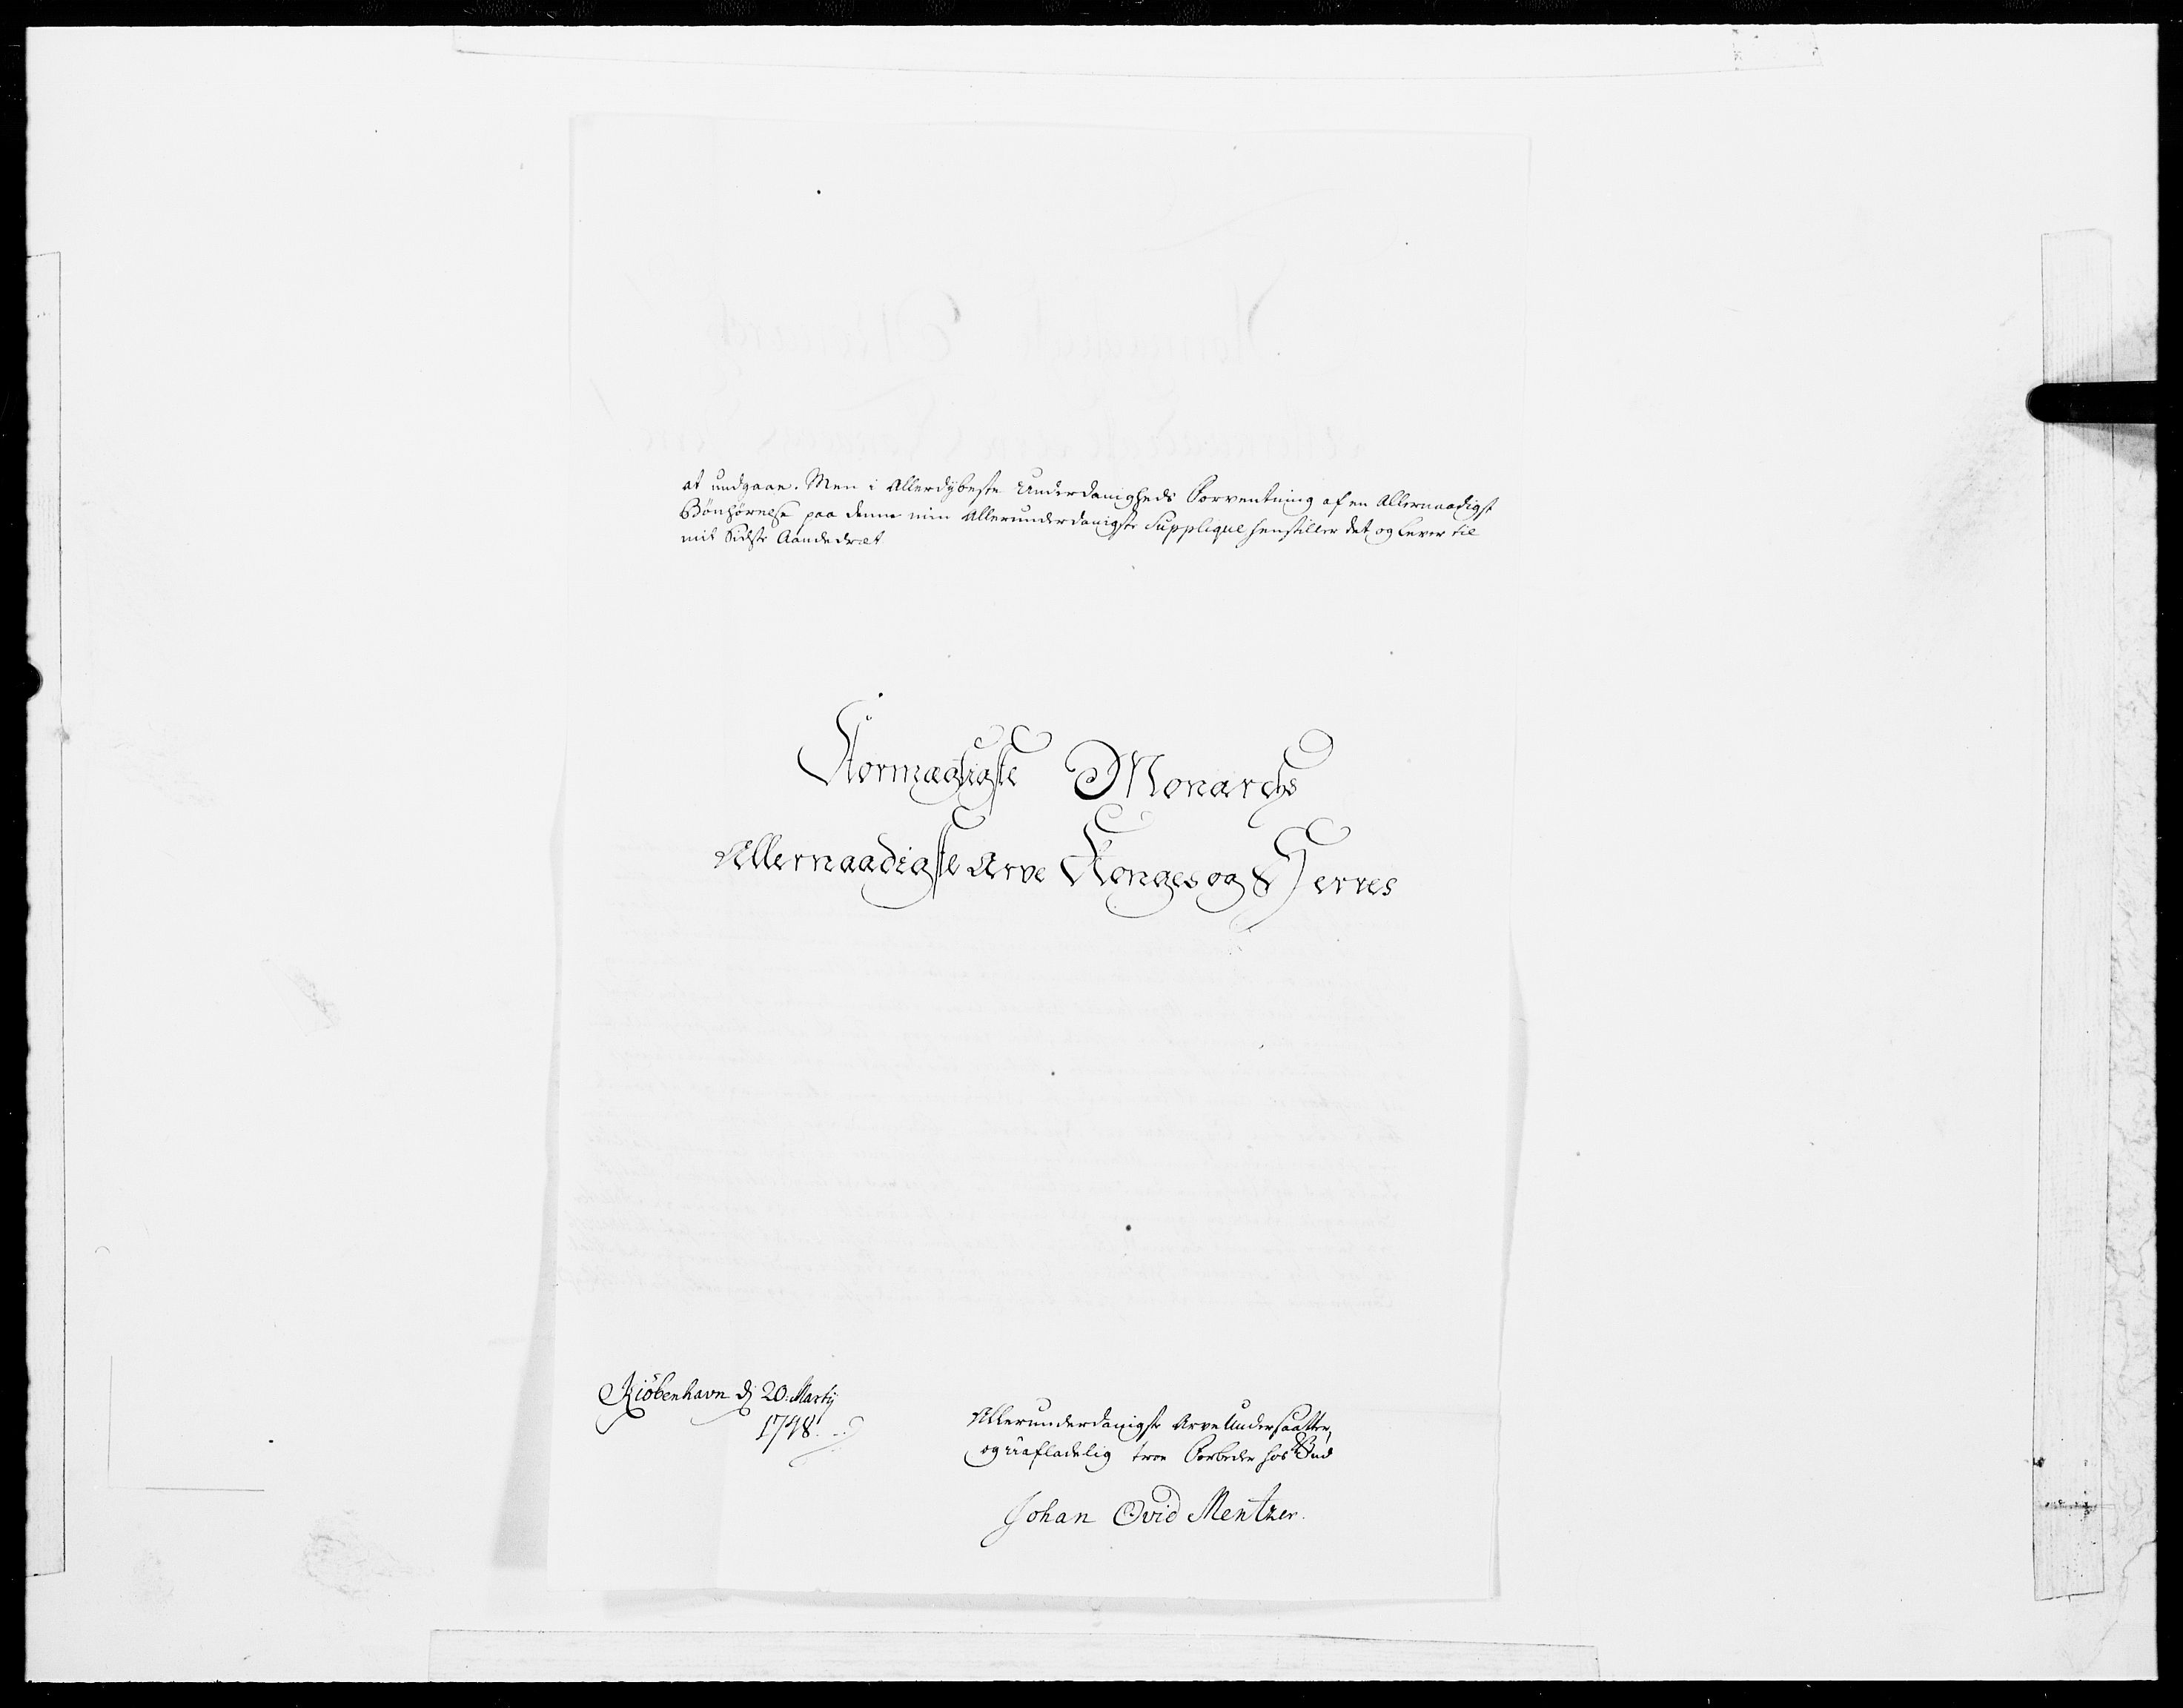 at undgaae. Men i Allerdÿbeste Underdanigheds Forventning af en Allernaadigst
Bönhörelse paa denne min Allerunderdanigste Supplique henstiller det og lever til
mit Sidste Aandedræt
Stormægtigste Monarchs
Allernaadigste Arve Konges og Herres
Kiöbenhavn dj 20: Martij
1748.
Allerunderdanigste Arve Undersaatter,
og uafladelig troe Forbeder hos Gud
Johan Ovid Mentzer.